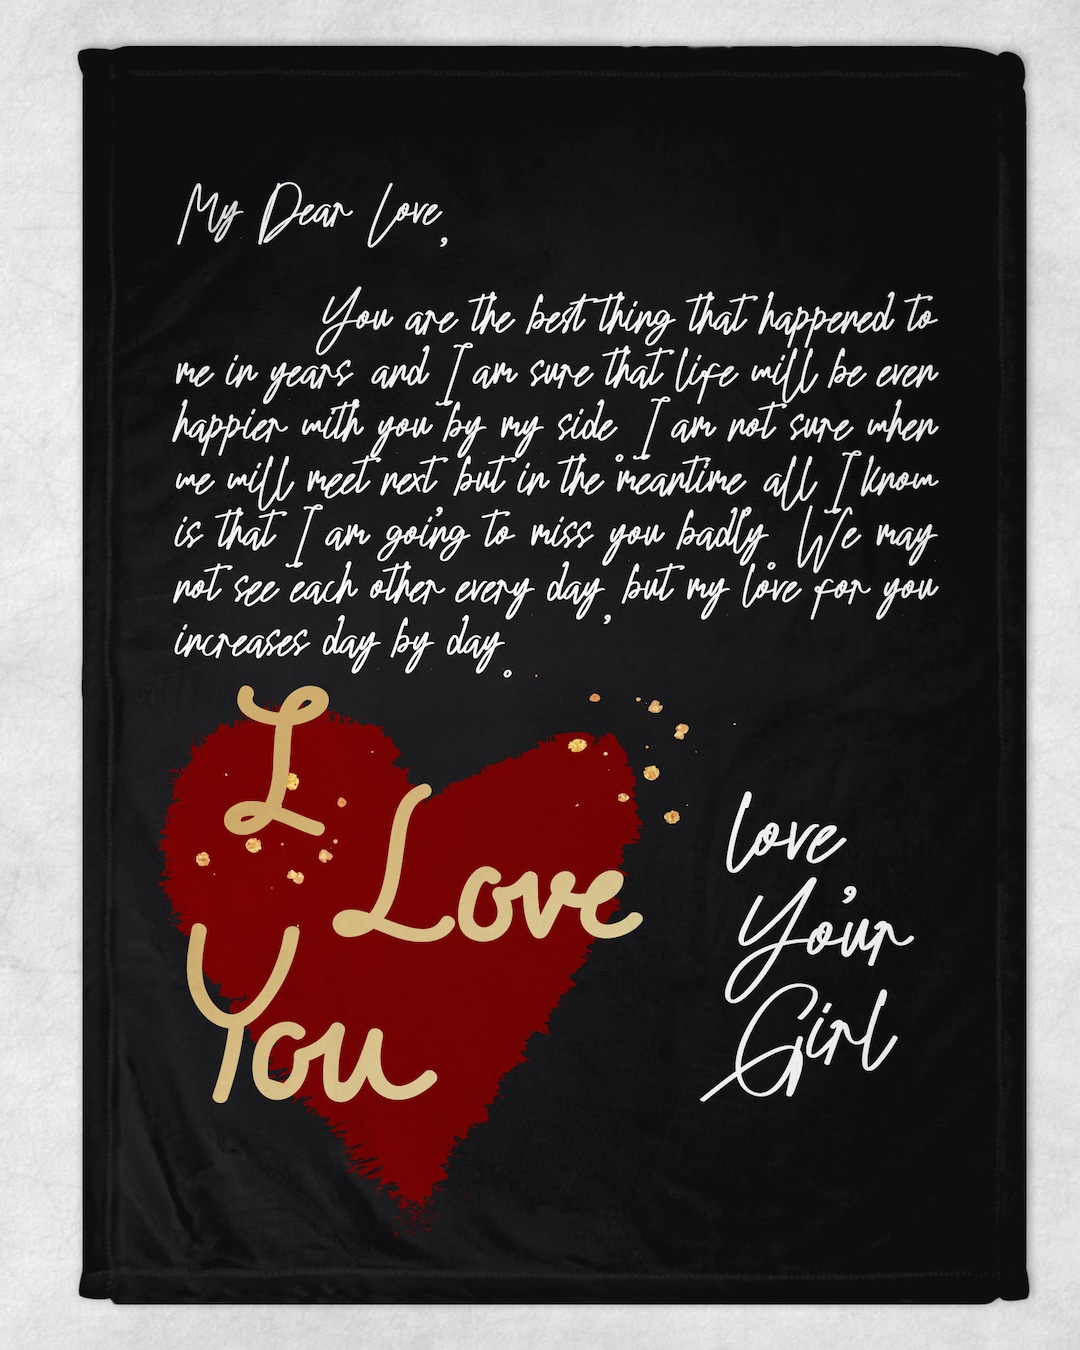 My Dear Love,
You are the best thing that happened to
me in years and I am sure that life will be even
happier with you by my side. I am not sure when
we will meet next but in the meantime all I know
is that I am going to miss you badly. We may
not see each other every day, but my love for you
increases day by day.
I
Love
You
Love,
Your
Girl